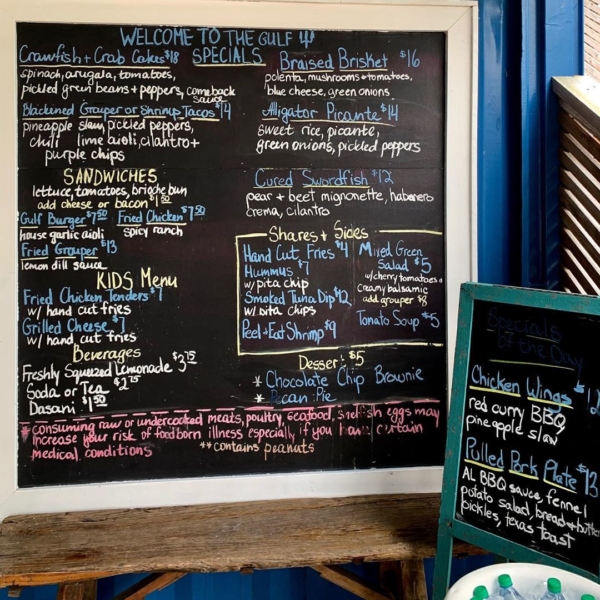 WELCOME TO THE GULF
SPECIALS
Crawfish + Crab Cakes $18
spinach, arugala, tomatoes,
pickled green beans + peppers, comeback
sauce
Blackened Grouper or Shrimp Tacos $14
pineapple slaw, pickled peppers,
chili lime aioli, cilantro +
purple chips
SANDWICHES
lettuce, tomatoes, brioche bun
add cheese or bacon $1.50
Gulf Burger $7.50 Fried Chicken $7.50
house garlic aioli spicy ranch
Fried Grouper $13
lemon dill sauce
KIDS Menu
Fried Chicken Tenders $7
w/ hand cut fries
Grilled Cheese $7
w/ hand cut fries
Beverages
Freshly Squeezed Lemonade $3.75
Soda or Tea $2.75
Dasani $1.50
Braised Brisket $16
polenta, mushrooms + tomatoes,
blue cheese, green onions
Alligator Picante $14
sweet rice, picante,
green onions, pickled peppers
Cured Swordfish $12
pear + beet mignonette, habenero
crema, cilantro
Shares + Sides
Hand Cut Fries $4
Hummus $7
w/ pita chip
Smoked Tuna Dip $12
w/ pita chips
Peel + Eat Shrimp $9
Mixed Green
Salad $5
w/ cherry tomatoes +
creamy balsamic
add grouper $8
Tomato Soup $5
Dessert $5
* Chocolate Chip Brownie
* Pecan Pie
* consuming raw or undercooked meats, poultry, seafood, shellfish eggs may
increase your risk of foodborn illness especially if you have certain
medical conditions
** contains peanuts
Specials
of the Day
Chicken Wings $12
red curry BBQ
pineapple slaw
Pulled Pork Plate $13
AL BBQ sauce, fennel
potato salad, bread + butter
pickles, texas toast